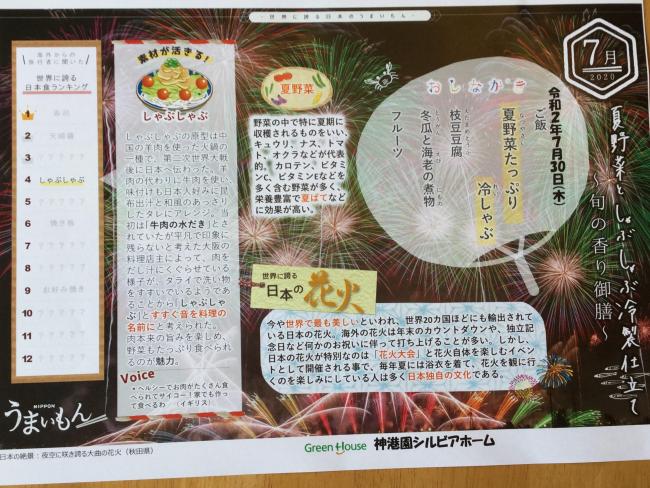 - 世界に誇る日本のうまいもん -
海外からの
旅行者に聞いた
世界に誇る
日本食ランキング
1 寿司
2 天婦羅
3 ?????
4 しゃぶしゃぶ
5 ?????
6 焼き鳥
7 ?????
8 ?????
9 お好み焼き
10 ?????
11 ?????
12 ?????
NIPPON
うまいもん
素材が活きる!
しゃぶしゃぶ
しゃぶしゃぶの原型は中
国の羊肉を使った火鍋の
一種で、第二次世界大戦
後に日本へ伝わった。羊
肉の代わりに牛肉を使い
味付けも日本人好みに昆
布出汁と和風のあっさり
したタレにアレンジ。当
初は「牛肉の水だき」とさ
れていたが平凡で印象に
残らないと考えた大阪の
料理店主によって、肉を
だし汁にくぐらせている
様子が、タライで洗い物
をすすいでいるようであ
ることから「しゃぶしゃ
ぶ」とすすぐ音を料理の
名前にと考えられた。
肉本来の旨みを楽しめ、
野菜もたっぷり食べられ
るのが魅力。
Voice
・ヘルシーでお肉がたくさん食べ
られてサイコー!家でも作っ
て食べるわ (イギリス)
夏野菜
野菜の中で特に夏期に
収穫されるものをいい、
キュウリ、ナス、トマ
ト、オクラなどが代表
的。カロテン、ビタミ
ンC、ビタミンEなどを
多く含む野菜が多く、
栄養豊富で夏ばてなど
に効果が高い。
おしながき
令和2年7月30日(木)
ご飯
夏野菜たっぷり
冷しゃぶ
枝豆豆腐
冬瓜と海老の煮物
フルーツ
7月
2020
夏野菜としゃぶしゃぶ冷製仕立て
~旬の香り御膳~
世界に誇る
日本の花火
今や世界で最も美しいといわれ、世界20カ国ほどにも輸出されて
いる日本の花火。海外の花火は年末のカウントダウンや、独立記
念日など何かのお祝いに伴って打ち上げることが多い。しかし、
日本の花火が特別なのは「花火大会」と花火自体を楽しむイベン
トとして開催される事で、毎年夏には浴衣を着て、花火を観に行
くのを楽しみにしている人は多く日本独自の文化である。
Green House 神港園シルビアホーム
日本の絶景:夜空に咲き誇る大曲の花火(秋田県)